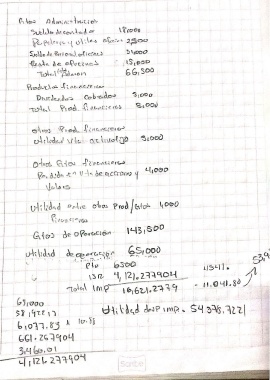 Gtos Administracion
Sueldo de contador 18,000
Papeleria y utiles 2,300
Sueldo de Personal oficinas 31,000
Renta de oficinas 15,000
Total 66,300
Productos financieros
Dividendos cobrados 5,000
Total Prod. financieros 5,000
Otros Prod. financieros
Utilidad Vta activo fijo 5,000
Otros Gtos financieros
Perdida en Vta de acciones y 4,000
Valores
Utilidad entre otros Prod/Gtos 1,000
financieros
Gtos de Operacion 143,500
Utilidad de operacion 65,000
Ptu 6500
ISR 4,121.277904
Total Imp 10,621.2779
Utilidad desp imp. 54 378.7221
65,000
6,077.83 x 10.88
661.267904
3,460.01
4,121.277904